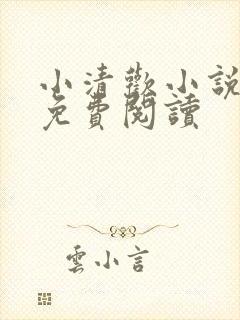 小清歡小說
免費閱讀
雲小言